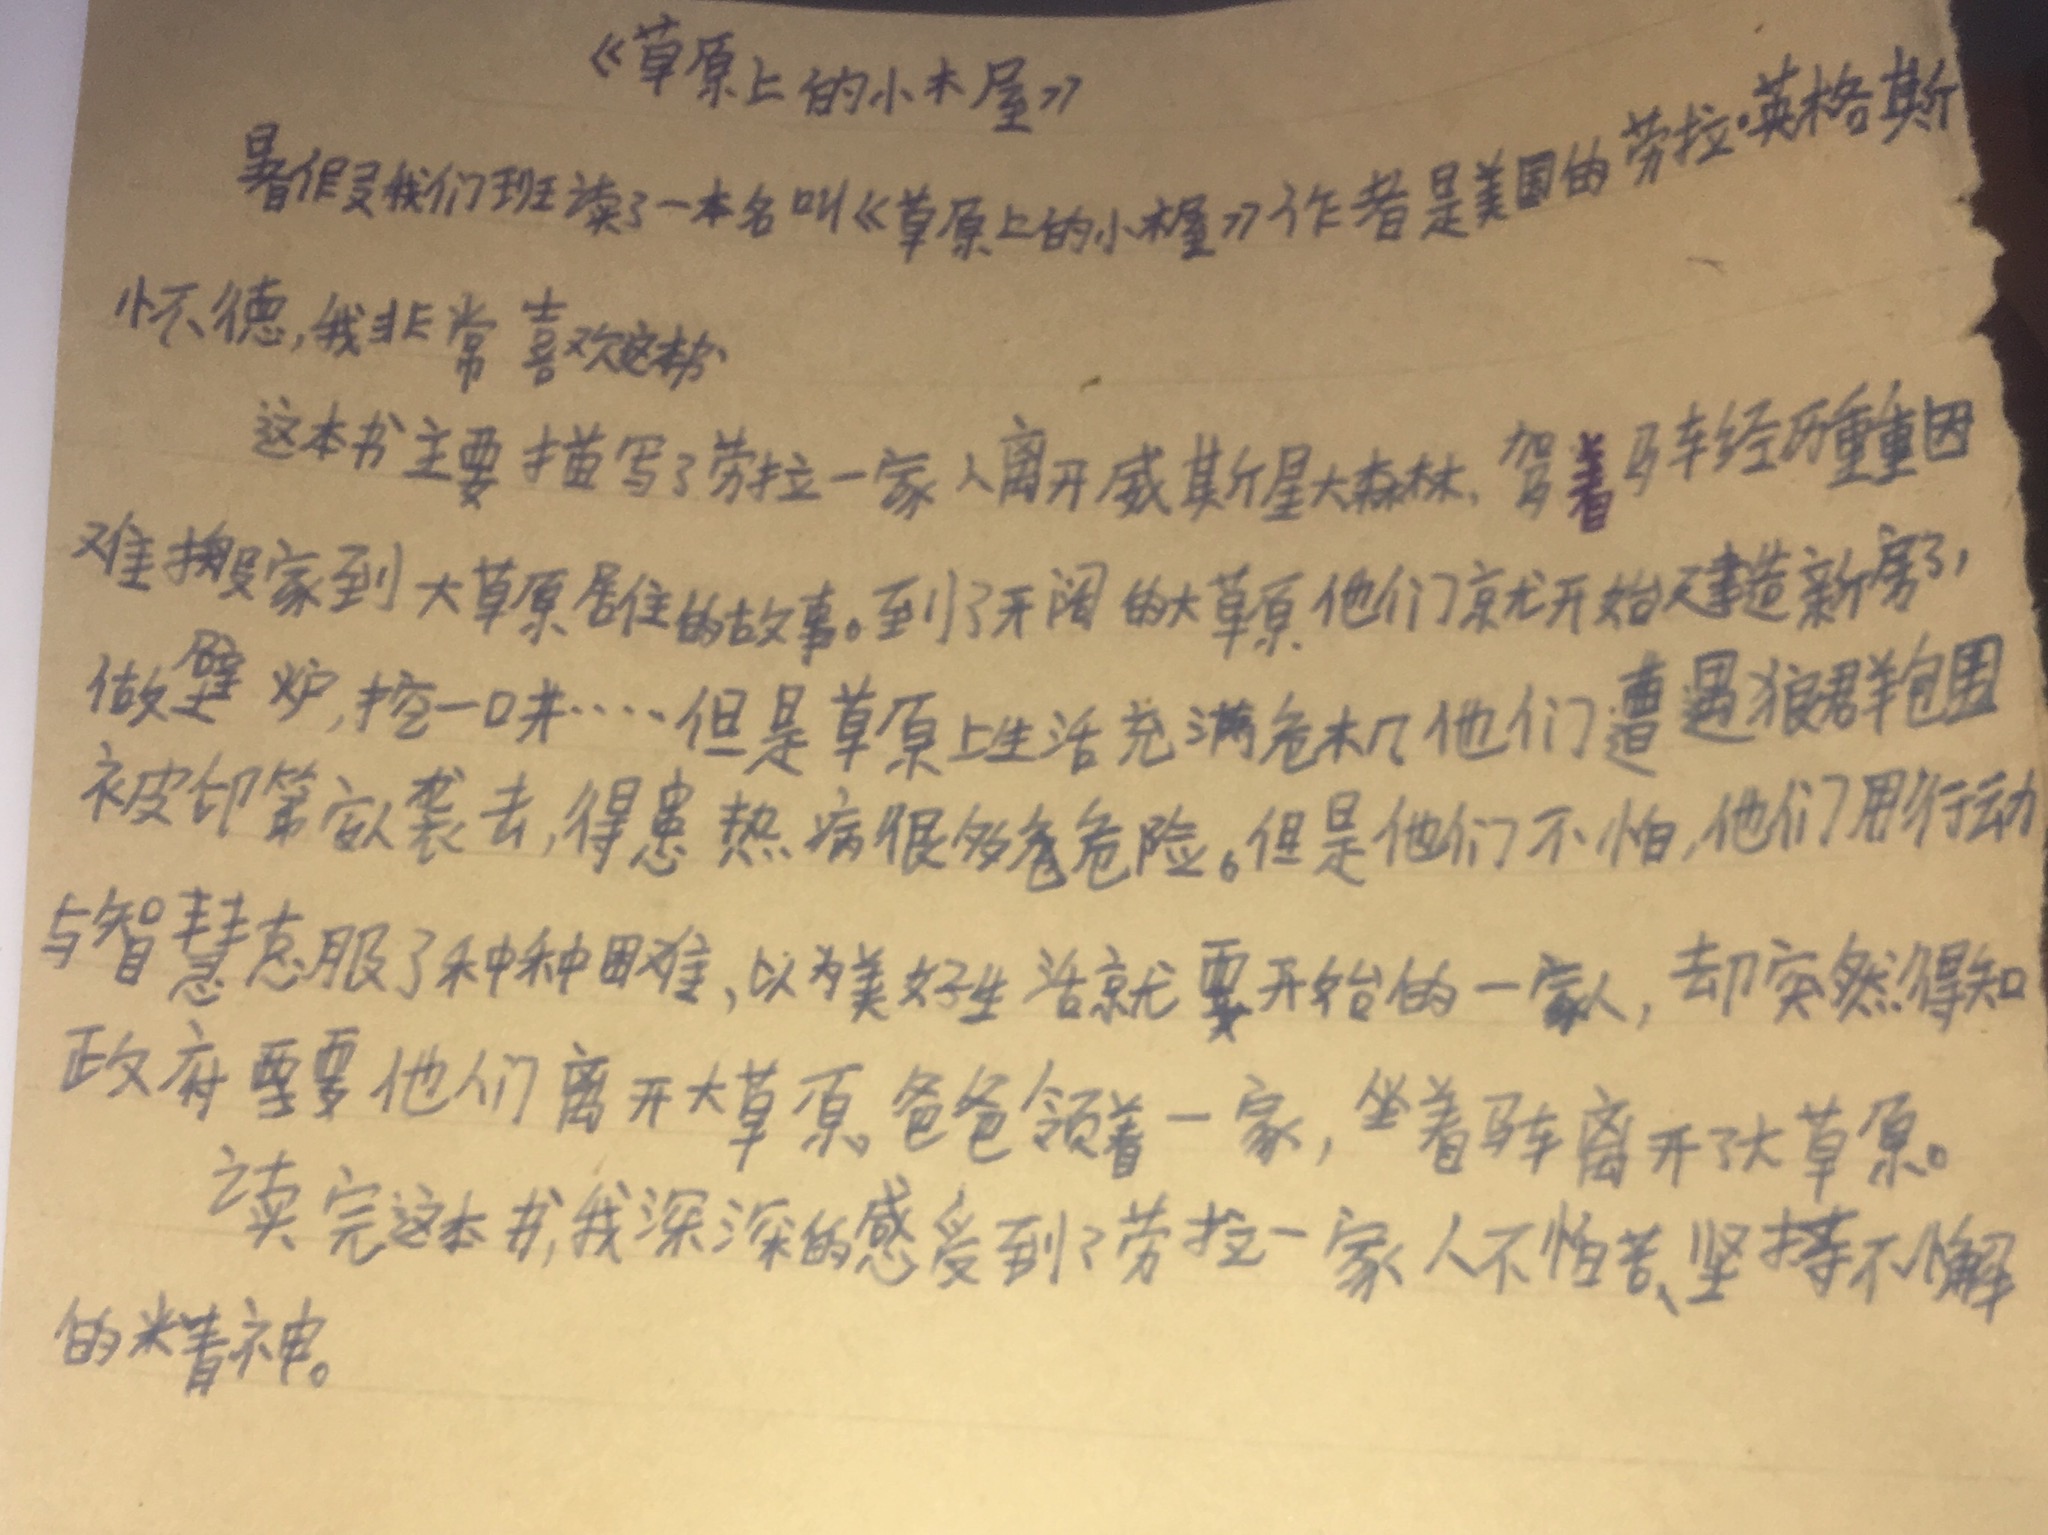 《草原上的小木屋》
暑假我们班读了一本名叫《草原上的小木屋》作者是美国的劳拉·英格斯
怀德,我非常喜欢这本书
这本书主要描写了劳拉一家人离开威斯星大森林,驾着马车经历重重困
难搬家到大草原居住的故事。到了开阔的大草原他们就开始建造新房了,
做壁炉,挖一口井····但是草原上生活充满危机他们遭遇狼群包围
被印第袭去,得患热病很多危险。但是他们不怕,他们用行动
与智慧克服了种种困难,以为美好生活就要开始的一家人,却突然得知
政府要他们离开大草原。爸爸领着一家,坐着马车离开了大草原。
读完这本书,我深深的感受到了劳拉一家人不怕苦、坚持不懈
的精神。